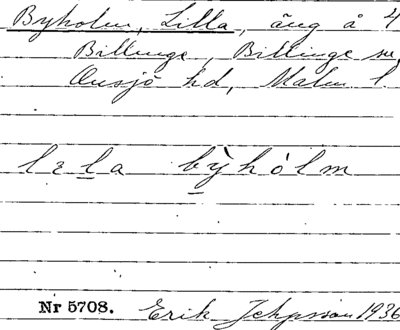 Byholm, Lilla, äng å 4
Billinge, Billinge sn,
Onsjö hd, Malm. l.
bỳhólm
Nr 5708. Erik Jeppsson 1936